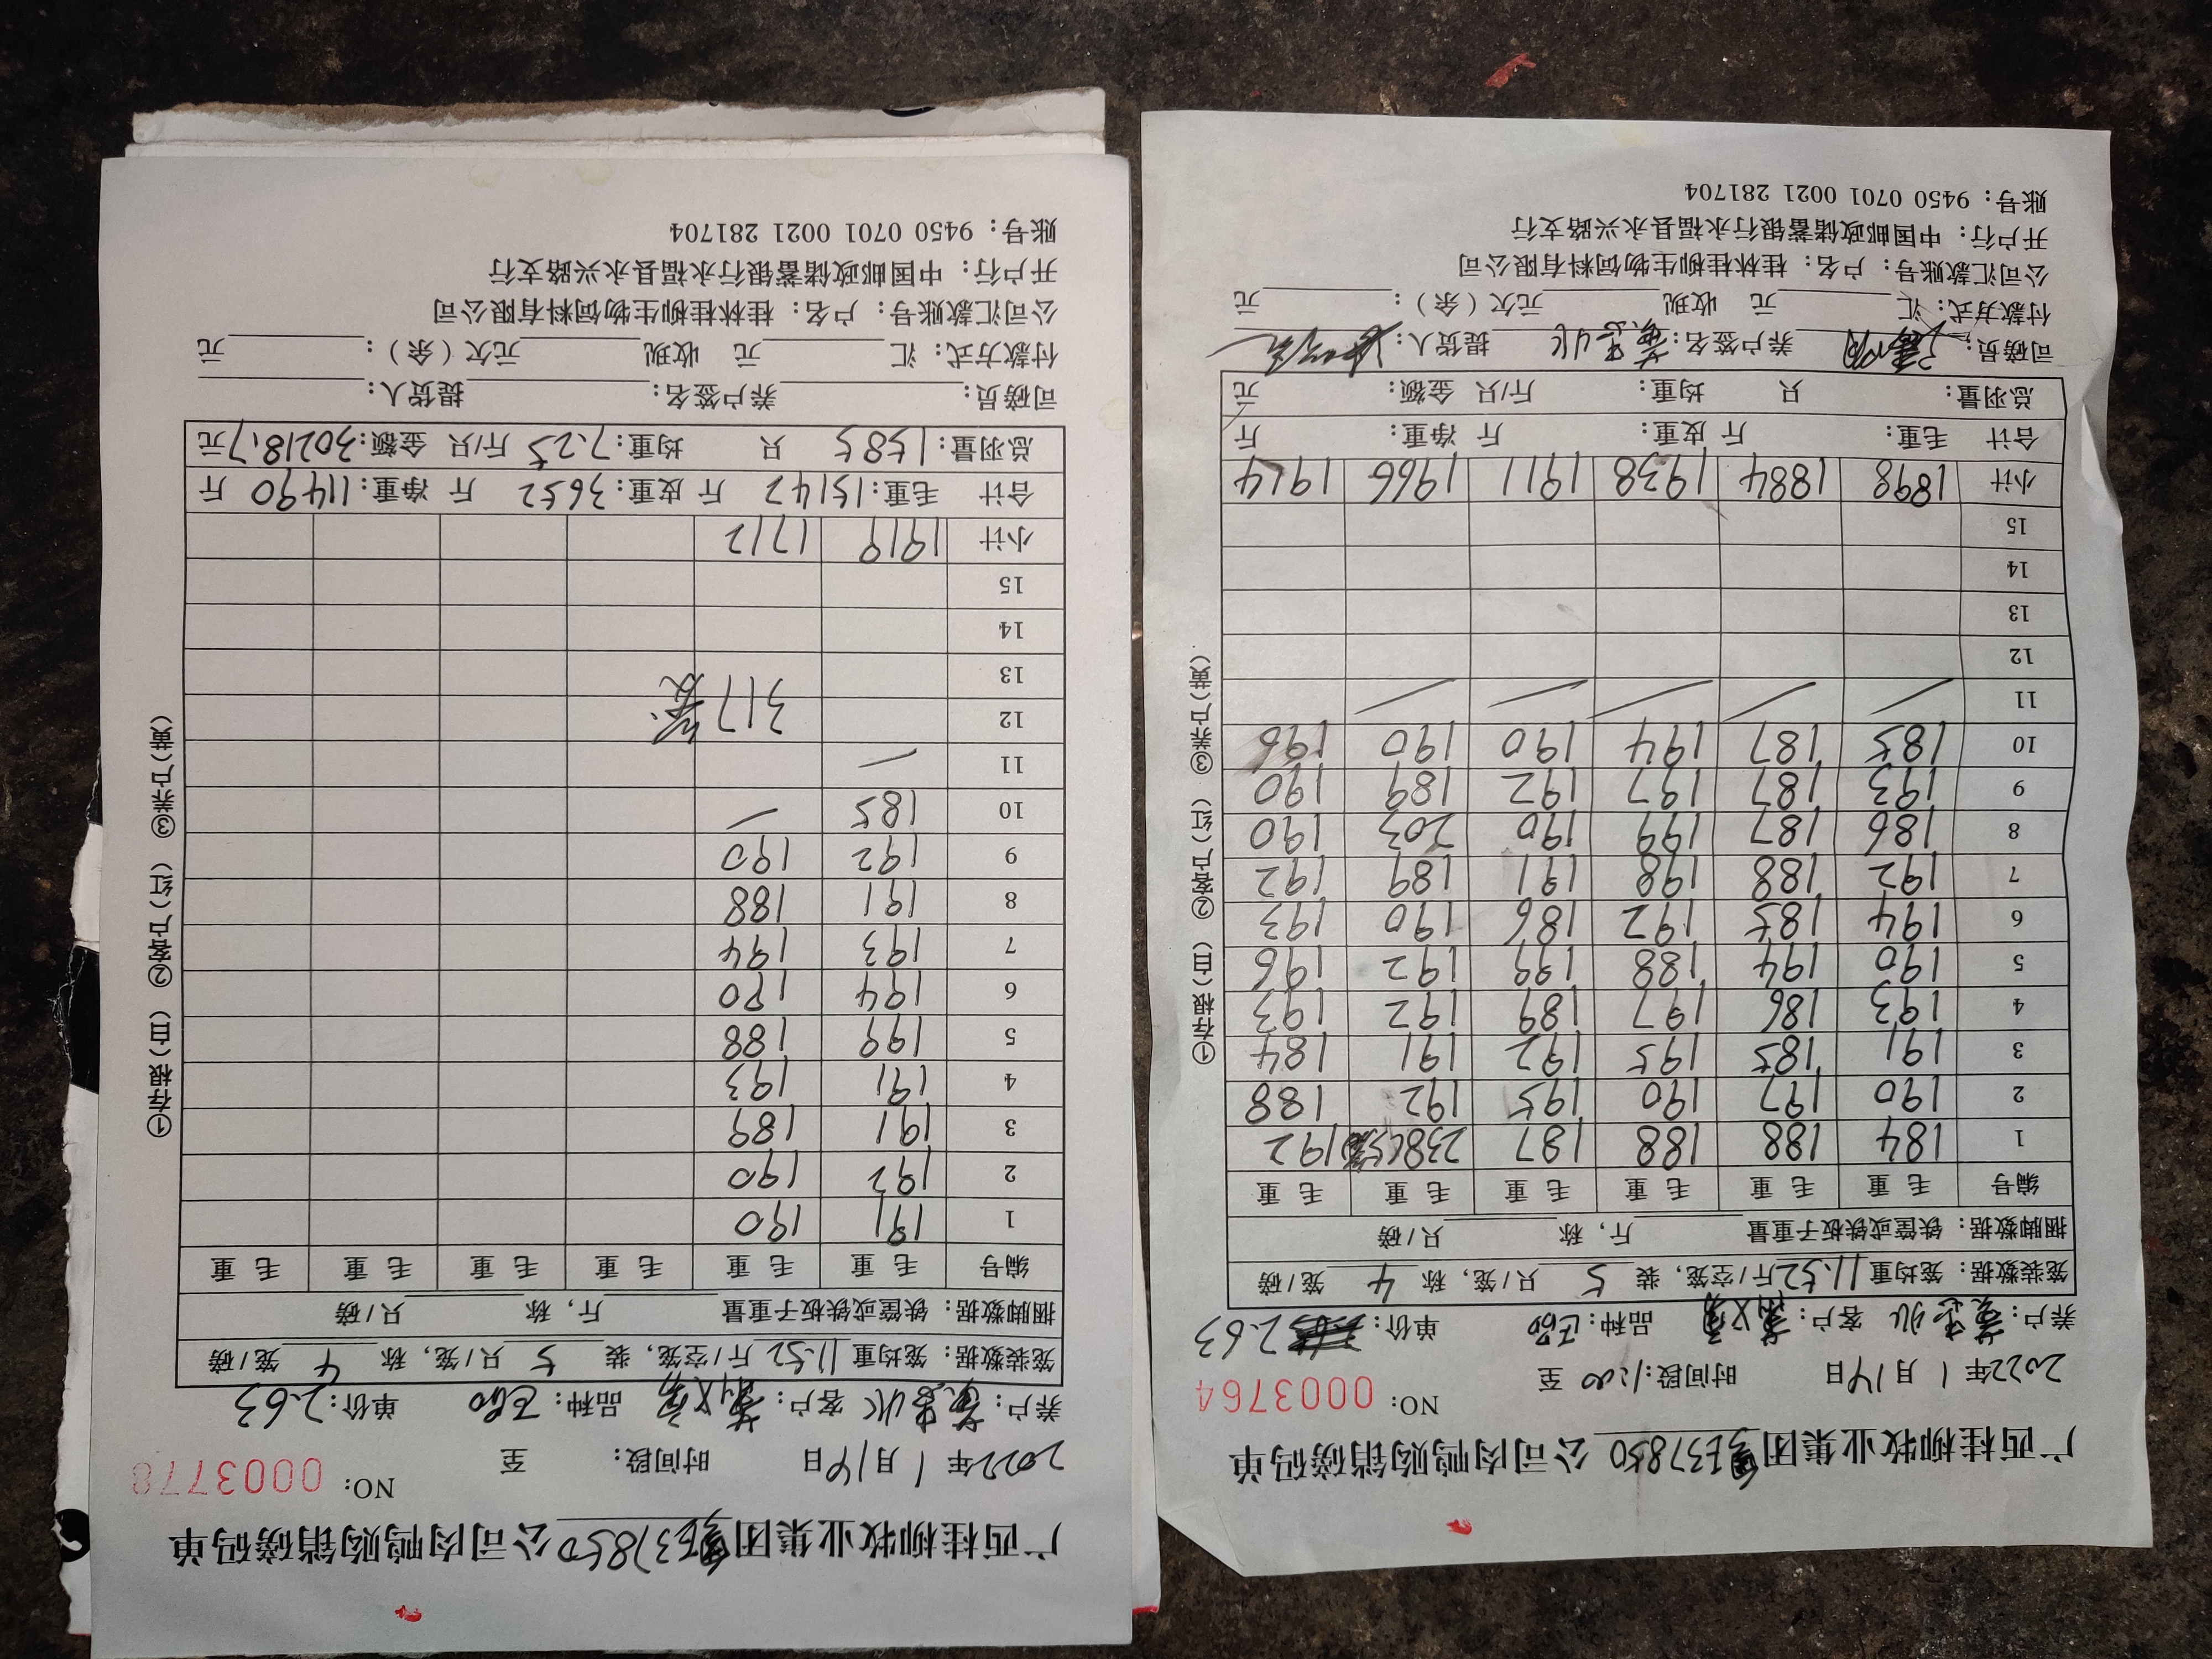 广西桂柳牧业集团 E37850 公司肉鸭购销磅码单
2022年 1 月 14 日 时间段: 1:00 至 NO: 0003764
养户: 客户: 品种: 单价: 2.63
笼装数据: 笼均重 11.52 斤/空笼, 装 5 只/笼, 称 4 笼/磅
捆脚数据: 铁筐或铁板子重量 斤, 称 只/磅
编号 毛重 毛重 毛重 毛重 毛重 毛重
1 184 188 188 187 238(5笼) 192
2 190 197 190 195 192 188
3 191 185 195 192 191 184
4 193 186 197 189 192 193
5 190 194 188 199 192 196
6 194 185 192 186 190 193
7 192 188 198 191 189 192
8 186 187 199 190 203 190
9 193 187 197 192 189 190
10 185 187 194 190 190 196
11
12
13
14
15
小计 1898 1884 1938 1911 1966 1914
合计 毛重: 斤 皮重: 斤 净重: 斤
总羽量: 只 均重: 斤/只 金额: 元
司磅员: 养户签名: 提货人:
付款方式: 汇 元 收现 元欠(余): 元
公司汇款账号: 户名: 桂林桂柳生物饲料有限公司
开户行: 中国邮政储蓄银行永福县永兴路支行
账号: 9450 0701 0021 281704
①存根(白) ②客户(红) ③养户(黄)
广西桂柳牧业集团 E37850 公司肉鸭购销磅码单
2022年 1 月 14 日 时间段: 至 NO: 0003778
养户: 客户: 品种: 单价: 2.63
笼装数据: 笼均重 11.52 斤/空笼, 装 5 只/笼, 称 4 笼/磅
捆脚数据: 铁筐或铁板子重量 斤, 称 只/磅
编号 毛重 毛重 毛重 毛重 毛重 毛重
1 191 190
2 192 190
3 191 189
4 191 193
5 199 188
6 194 190
7 193 194
8 191 188
9 192 190
10 185
11
12 317笼
13
14
15
小计 1919 1712
合计 毛重: 15142 斤 皮重: 3652 斤 净重: 11490 斤
总羽量: 1585 只 均重: 7.25 斤/只 金额: 30218.7元
司磅员: 养户签名: 提货人:
付款方式: 汇 元 收现 元欠(余): 元
公司汇款账号: 户名: 桂林桂柳生物饲料有限公司
开户行: 中国邮政储蓄银行永福县永兴路支行
账号: 9450 0701 0021 281704
①存根(白) ②客户(红) ③养户(黄)